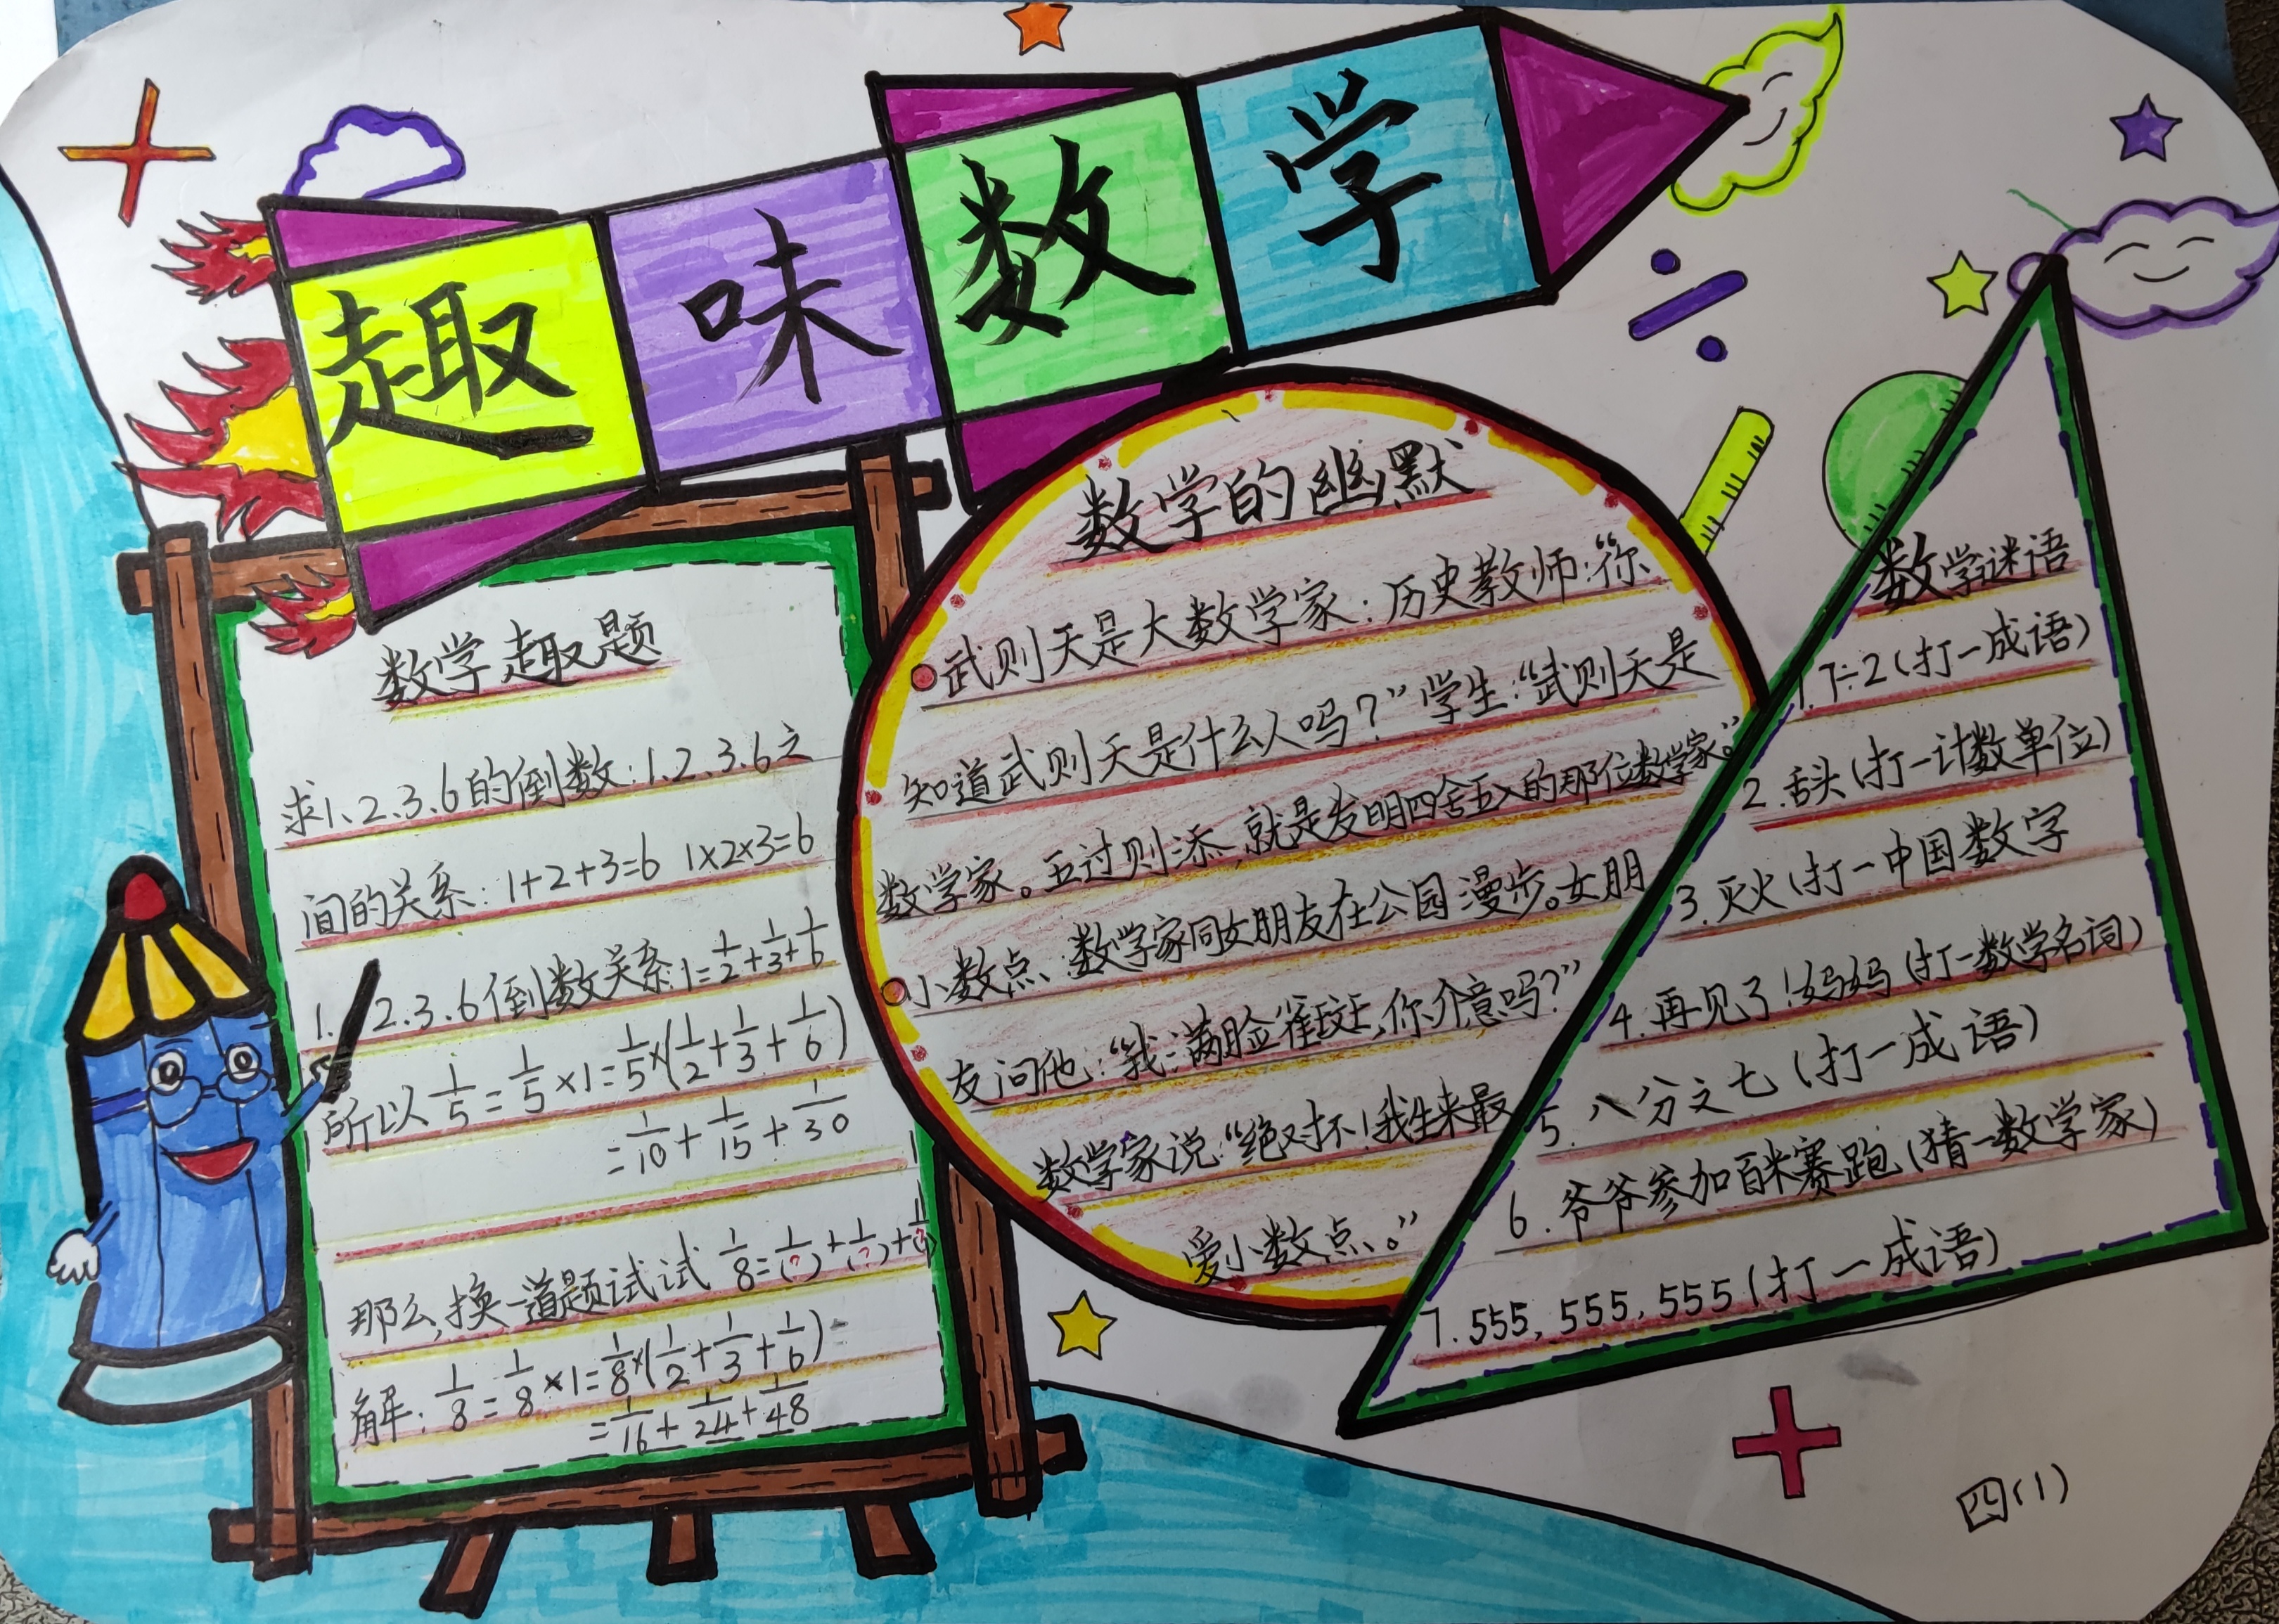 趣味数学
数学趣题
求1、2、3、6的倒数:1.2.3.6之
间的关系:1+2+3=6 1×2×3=6
1. 2.3.6倒数关系:1=1/2+1/3+1/6
所以1/5=1/5×1=1/5×(1/2+1/3+1/6)
=1/10+1/15+1/30
那么,换一道题试试 1/8=1/(?)+1/(?)+1/(?)
解:1/8=1/8×1=1/8×(1/2+1/3+1/6)=
=1/16+1/24+1/48
数学的幽默
武则天是大数学家:历史教师:“你
知道武则天是什么人吗?”学生:“武则天是
数学家。五过则添,就是发明四舍五入的那位数学家。”
小数点、数学家同女朋友在公园漫步。女朋
友问他:“我满脸雀斑,你介意吗?”
数学家说:“绝对不!我生来最
爱小数点。”
数学谜语
1.7÷2(打一成语)
2.舌头(打一计数单位)
3.灭火(打一中国数字
4.再见了!妈妈(打一数学名词)
5.八分之七(打一成语)
6.爷爷参加百米赛跑(猜一数学家)
7.555,555,555(打一成语)
四(1)